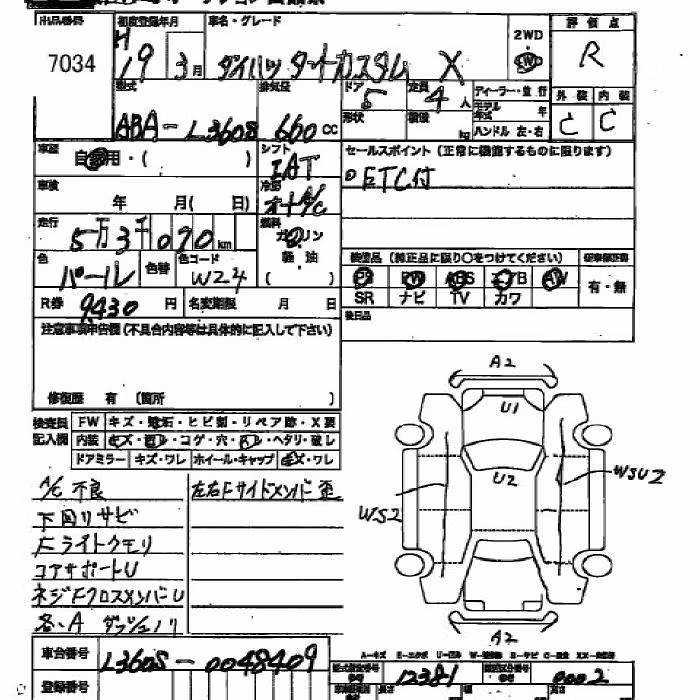 出品番号 初度登録年月 車名・グレード 評価点
7034 H 19 3月 ダイハツ タントカスタム X 2WD 4W R
型式 排気量 ドア 定員 ディーラー・並行 外装 内装
ABA-L360S 660cc 5 4人 モデル年式 年 C C
形状 積載 kg ハンドル 左・右
車歴 自家用・( ) シフト IAT セールスポイント(正常に機能するものに限ります)
車検 年 月( 日) 冷房 オートA/C ETC付
走行 5万3千090km 燃料 ガソリン
軽油
色 パール 色替 色コード W24 ( )
検査品(純正品に限り○をつけてください)
PS PW ABS エアB AW 有・無
SR ナビ TV カワ
R券 9430円 名変期限 月 日
後日品
注意事項申告欄(不具合内容等は具体的に記入して下さい)
修復歴 有 〔箇所 〕
検査員記入欄 FW キズ・飛石・ヒビ割・リペア跡・X要
内装 キズ・ヨゴレ・コゲ・穴・ハレ・ヘタリ・破レ
ドアミラー キズ・ワレ ホイール・キャップ キズ・ワレ
A/C 不良
下回リサビ
左右Fサイドメンバー歪
Fライトクモリ
コアサポートU
ネジFクロスメンバーU
各・A ダッシュノリ
A2
U1
U2
WSU2
WS2
A2
車台番号 L360S-0048409
型式指定番号 12381 類別区分番号 0002
登録番号